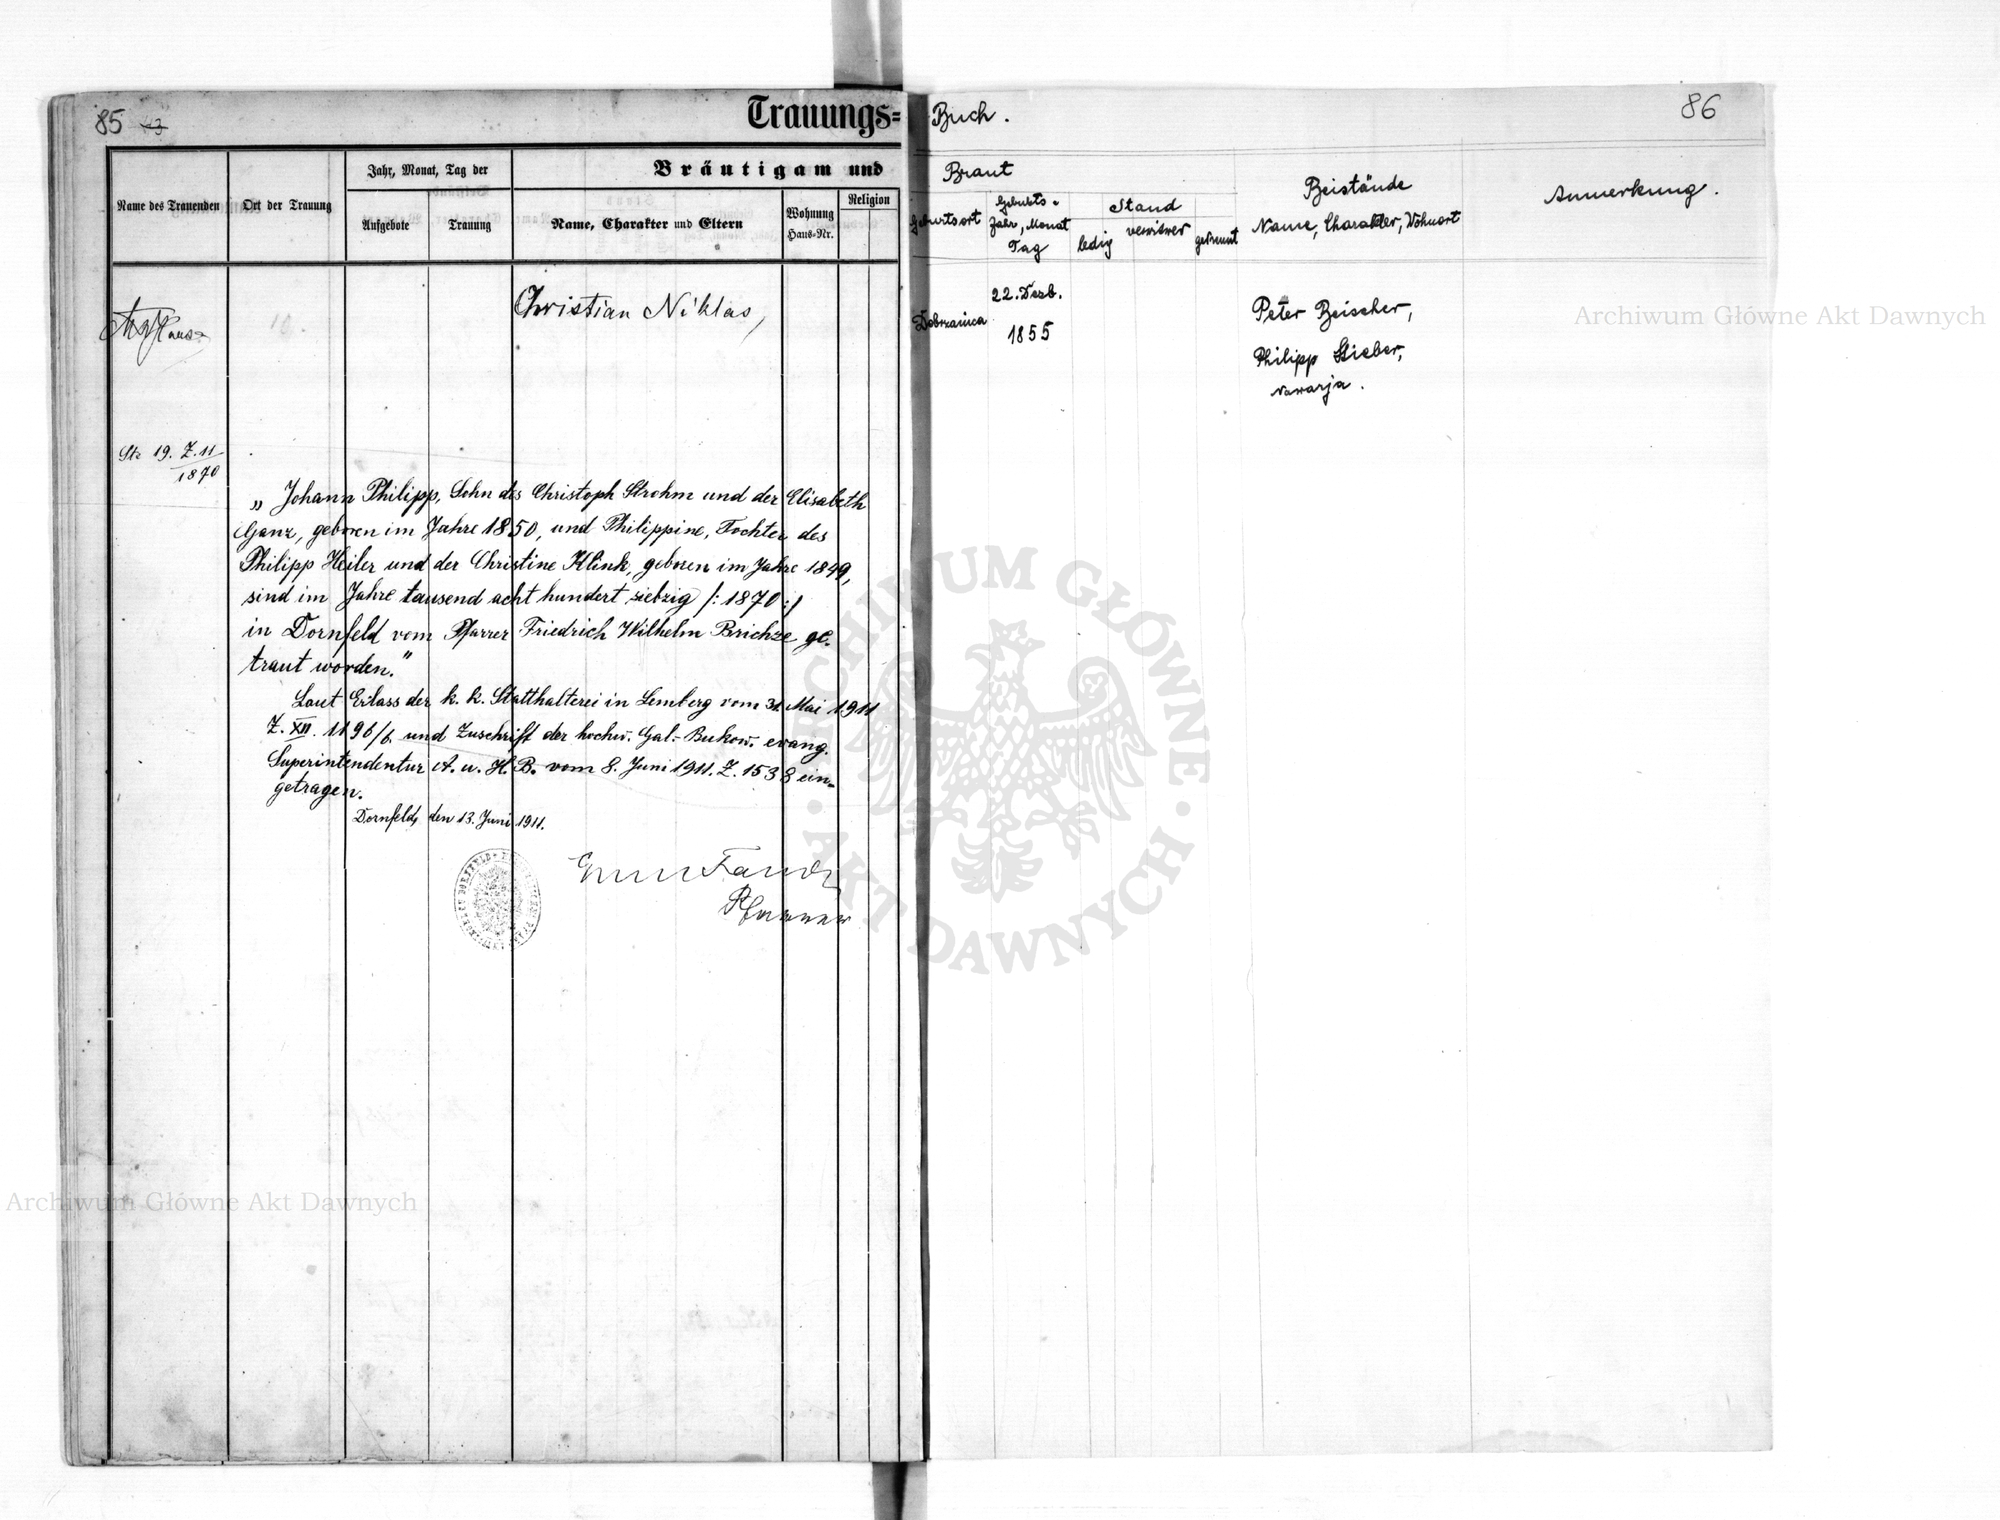 85
Trauungs=
Buch.
86
Name des Trauenden
Ort der Trauung
Jahr, Monat, Tag der
Aufgebote
Trauung
Bräutigam und
Name, Charakter und Eltern
Wohnung
Haus-Nr.
Religion
Braut
Geburtsort
Geburts-
Jahr, Monat
Tag
Stand
ledig
verwitwet
getrennt
Beistände
Name, Charakter, Wohnort
Anmerkung.
Christian Niklas,
22. Dezb.
1855
Dobrzanica
Peter Beischer,
Philipp Stieber,
Nawarja.
Ste 19. Z. 11
1870
„Johann Philipp, Sohn des Christoph Strohm und der Elisabeth
Ganz, geboren im Jahre 1850, und Philippine, Tochter des
Philipp Heiler und der Christine Klink, geboren im Jahre 1849,
sind im Jahre tausend acht hundert siebzig /:1870:/
in Dornfeld vom Pfarrer Friedrich Wilhelm Brichze ge-
traut worden."
Laut Erlass der k. k. Statthalterei in Lemberg vom 31. Mai 1911
Z. XII. 1196/6 und Zuschrift der hochw. Gal.-Bukow. evang.
Superintendentur A. u. H. B. vom 8. Juni 1911. Z. 1538 ein-
getragen.
Dornfeld, den 13. Juni 1911.
Pfarrer
Archiwum Główne Akt Dawnych
Archiwum Główne Akt Dawnych
ARCHIWUM GŁÓWNE · AKT DAWNYCH ·